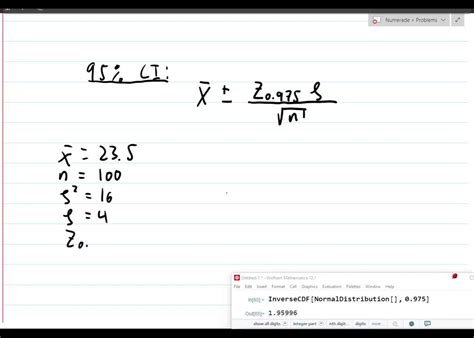 Numerade + Problems
95% CI:
X̄ ± Z0.975 s
√n
x̄ = 23.5
n = 100
s² = 16
s = 4
Z0.
File Edit Insert Format Cell Graphics Evaluation Palettes Window Help
InverseCDF[NormalDistribution[], 0.975]
1.95996
show all digits integer part nth digit digits more...